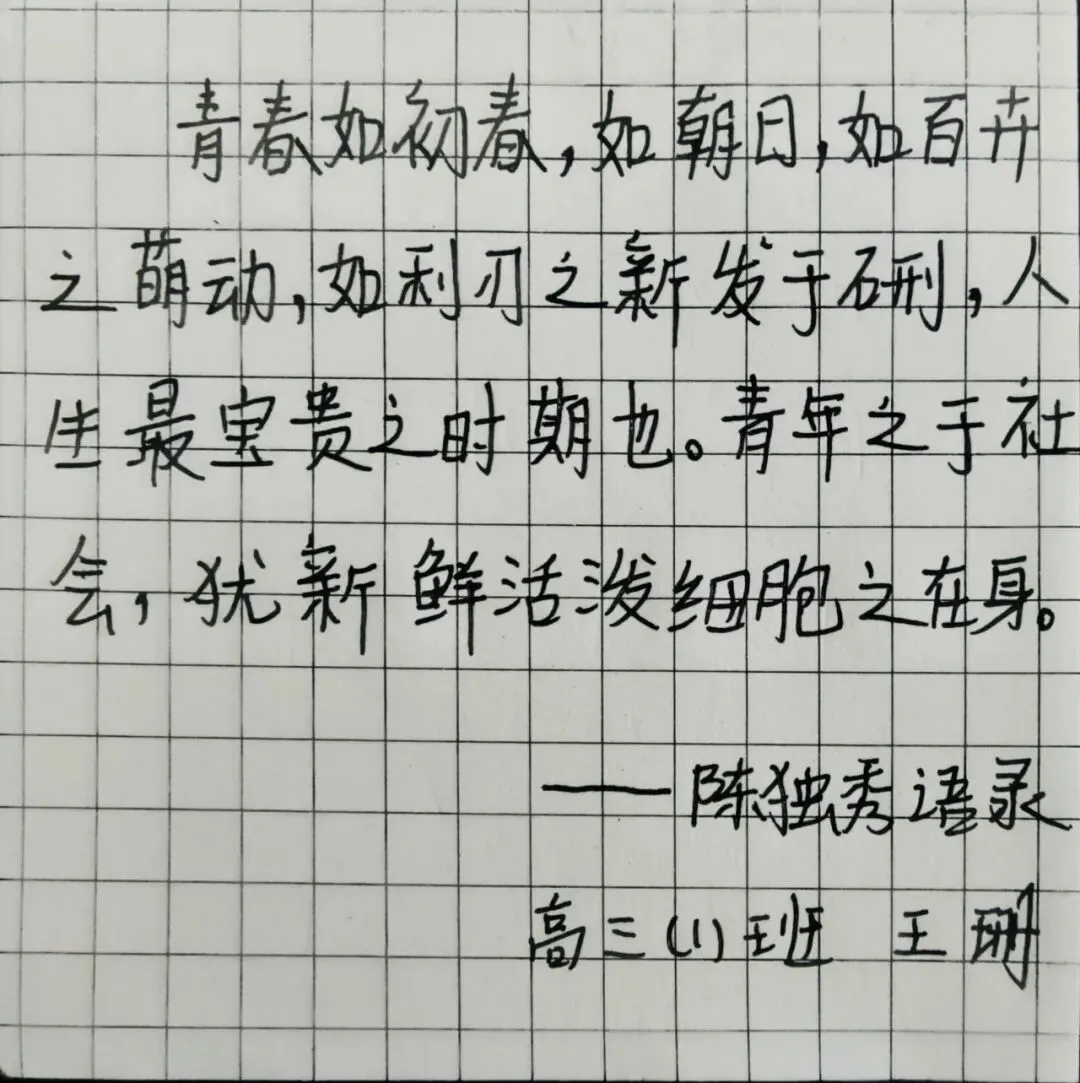 青春如初春，如朝日，如百卉
之萌动，如利刃之新发于硎，人
生最宝贵之时期也。青年之于社
会，犹新鲜活泼细胞之在身。
——陈独秀语录
高三(1)班 王珊